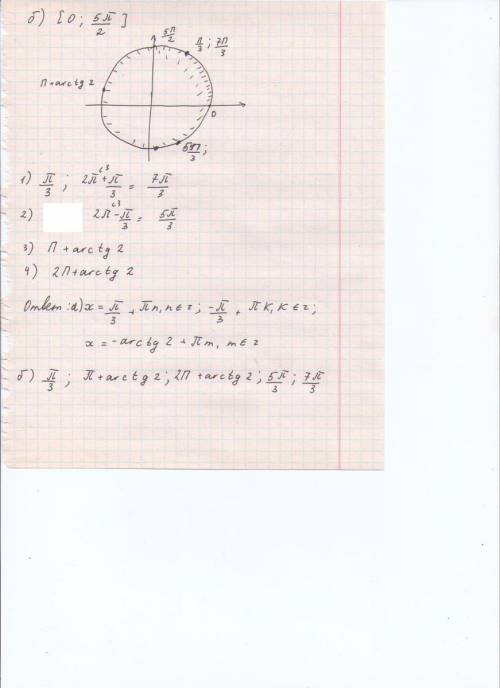 б) [0; 5π/2]
5π/2
π/3; 7π/3
π+arctg 2
0
5π/3;
1) π/3; 2π+π/3 = 7π/3
2) 2π-π/3 = 5π/3
3) π+arctg 2
4) 2π+arctg 2
Ответ: а) x = π/3 + πn, n∈z; -π/3 + πk, k∈z;
x = -arctg 2 + πm, m∈z
б) π/3; π+arctg 2; 2π+arctg 2; 5π/3; 7π/3